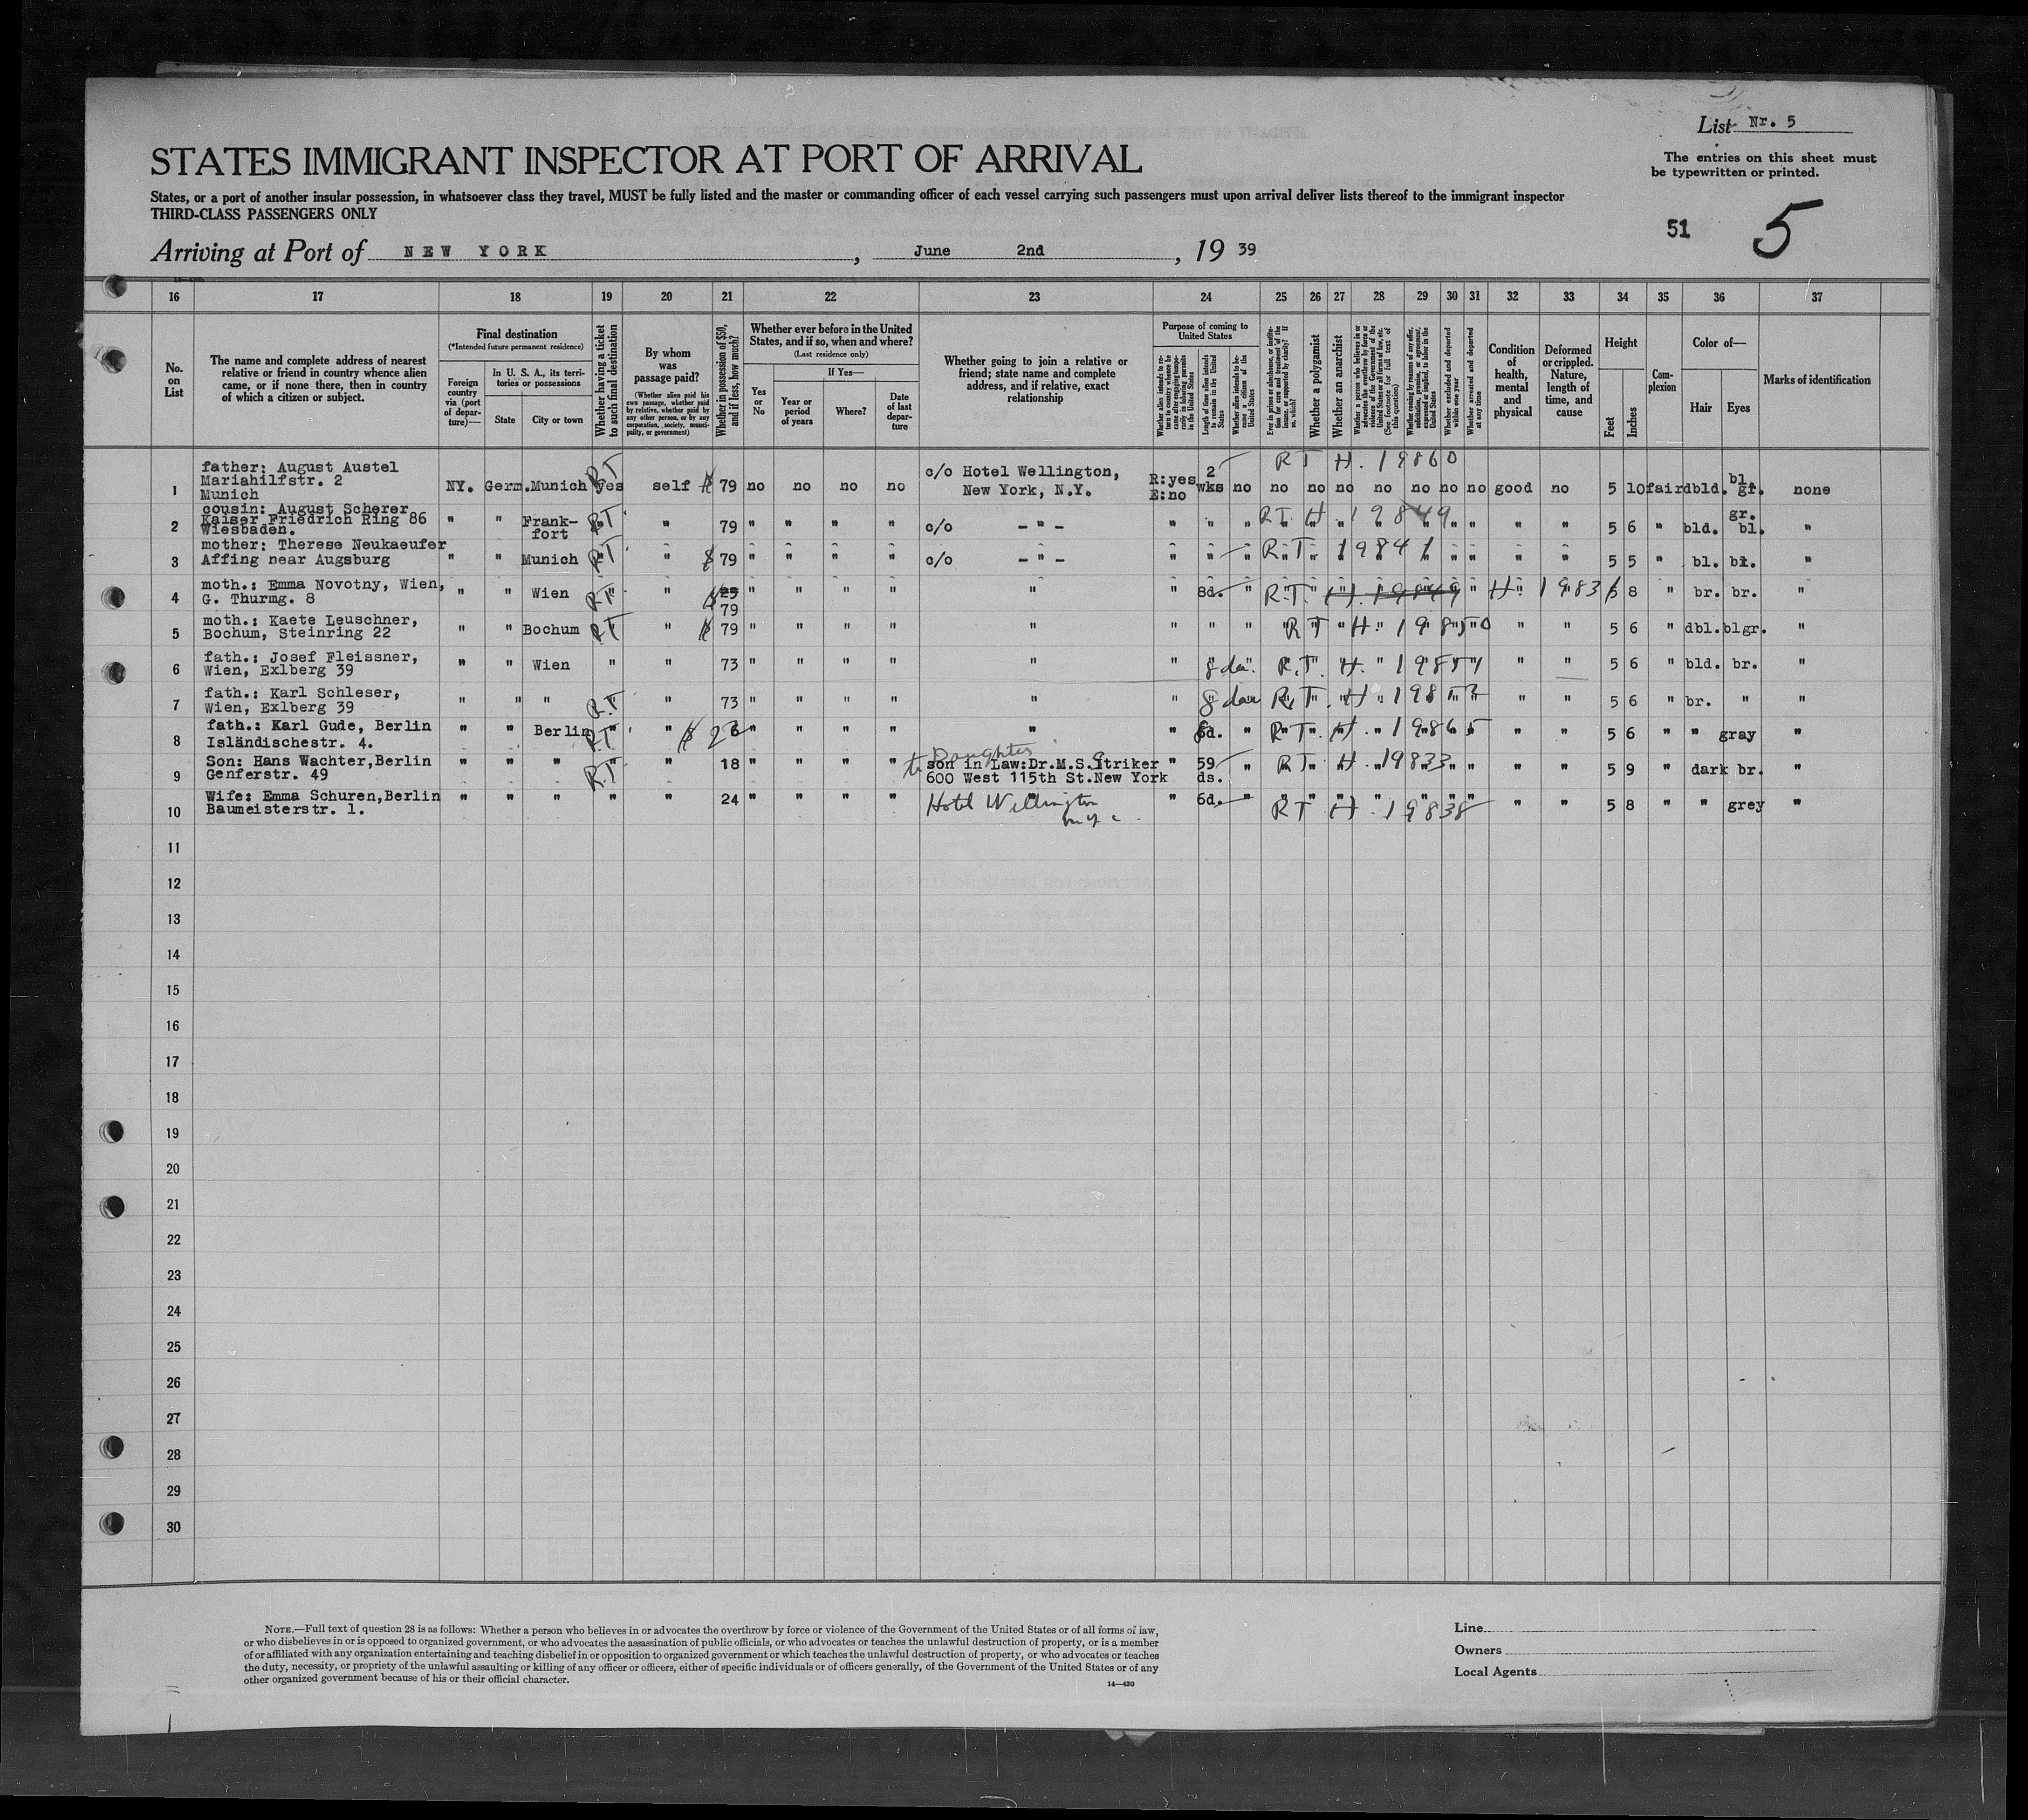 List Nr. 5
STATES IMMIGRANT INSPECTOR AT PORT OF ARRIVAL
The entries on this sheet must
be typewritten or printed.
States, or a port of another insular possession, in whatsoever class they travel, MUST be fully listed and the master or commanding officer of each vessel carrying such passengers must upon arrival deliver lists thereof to the immigrant inspector
THIRD-CLASS PASSENGERS ONLY
51 5
Arriving at Port of NEW YORK, June 2nd, 19 39
16 17 18 19 20 21 22 23 24 25 26 27 28 29 30 31 32 33 34 35 36 37
No.
on
List
The name and complete address of nearest
relative or friend in country whence alien
came, or if none there, then in country
of which a citizen or subject.
Final destination
(*Intended future permanent residence)
Foreign
country
via (port
of depar-
ture)—
In U. S. A., its terri-
tories or possessions
State
City or town
Whether having a ticket
to such final destination
By whom
was
passage paid?
(Whether alien paid his
own passage, whether paid
by relative, whether paid by
any other person, or by any
corporation, society, munici-
pality, or government)
Whether in possession of $50,
and if less, how much?
Whether ever before in the United
States, and if so, when and where?
(Last residence only)
Yes
or
No
If Yes—
Year or
period
of years
Where?
Date
of last
depar-
ture
Whether going to join a relative or
friend; state name and complete
address, and if relative, exact
relationship
Purpose of coming to
United States
Whether alien intends to re-
turn to country whence he
came after engaging tempo-
rarily in laboring pursuits
in the United States
Length of time alien intends
to remain in the United
States
Whether alien intends to be-
come a citizen of the
United States
Ever in prison or almshouse, or institu-
tion for care and treatment of the
insane, or supported by charity? If
so, which?
Whether a polygamist
Whether an anarchist
Whether a person who believes in or
advocates the overthrow by force or
violence of the Government of the
United States or all forms of law, etc.
(See footnote for full text of
this question)
Whether coming by reason of any offer,
solicitation, promise, or agreement,
expressed or implied, to labor in the
United States
Whether excluded and deported
within one year
Whether arrested and deported
at any time
Condition
of
health,
mental
and
physical
Deformed
or crippled.
Nature,
length of
time, and
cause
Height
Feet
Inches
Com-
plexion
Color of—
Hair
Eyes
Marks of identification
father: August Austel
Mariahilfstr. 2
Munich
1 NY. Germ. Munich yes RT self $ 79 no no no no c/o Hotel Wellington,
New York, N.Y. R:yes
E:no 2
wks no RT H. 19860
no no no no no no no good no 5 10 fair dbld. bl.
gr. none
cousin: August Scherer
Kaiser Friedrich Ring 86
Wiesbaden.
2 " " Frank-
fort RT " 79 " " " " c/o - " - " " " RT. H. 19849 " " 5 6 " bld. gr.
bl. "
mother: Therese Neukaeufer
Affing near Augsburg
3 " " Munich RT " $ 79 " " " " c/o - " - " " " R.T. 19841 " " 5 5 " bl. bl. "
moth.: Emma Novotny, Wien,
G. Thurmg. 8
4 " " Wien RT " $ 25
79 " " " " " " 8d. " R.T. H. 19849 H 1983 5 8 " br. br. "
moth.: Kaete Leuschner,
Bochum, Steinring 22
5 " " Bochum RT " $ 79 " " " " " " " " RT H. 19850 " " 5 6 " dbl. blgr. "
fath.: Josef Fleissner,
Wien, Exlberg 39
6 " " Wien " " 73 " " " " " " 8 da. R.T. H. 19851 " " 5 6 " bld. br. "
fath.: Karl Schleser,
Wien, Exlberg 39
7 " " " R.T " 73 " " " " " " 8 da R.T. H. 19852 " " 5 6 " br. " "
fath.: Karl Gude, Berlin
Isländischestr. 4.
8 " " Berlin R.T " $ 26 " " " " " " 8d. " RT. H. 19865 " " 5 6 " " gray "
Son: Hans Wachter,Berlin
Genferstr. 49
9 " " " RT " 18 " " " " to Daughter
son in Law:Dr.M.S.Striker
600 West 115th St.New York " 59
ds. " RT H. 19833 " " 5 9 " dark br. "
Wife: Emma Schuren,Berlin
Baumeisterstr. 1.
10 " " " " " 24 " " " " Hotel Wellington
n.y.c. " 6d. " RT H. 19838 " " 5 8 " " grey "
11
12
13
14
15
16
17
18
19
20
21
22
23
24
25
26
27
28
29
30
NOTE.—Full text of question 28 is as follows: Whether a person who believes in or advocates the overthrow by force or violence of the Government of the United States or of all forms of law,
or who disbelieves in or is opposed to organized government, or who advocates the assassination of public officials, or who advocates or teaches the unlawful destruction of property, or is a member
of or affiliated with any organization entertaining and teaching disbelief in or opposition to organized government or which teaches the unlawful destruction of property, or who advocates or teaches
the duty, necessity, or propriety of the unlawful assaulting or killing of any officer or officers, either of specific individuals or of officers generally, of the Government of the United States or of any
other organized government because of his or their official character.
14—430
Line
Owners
Local Agents